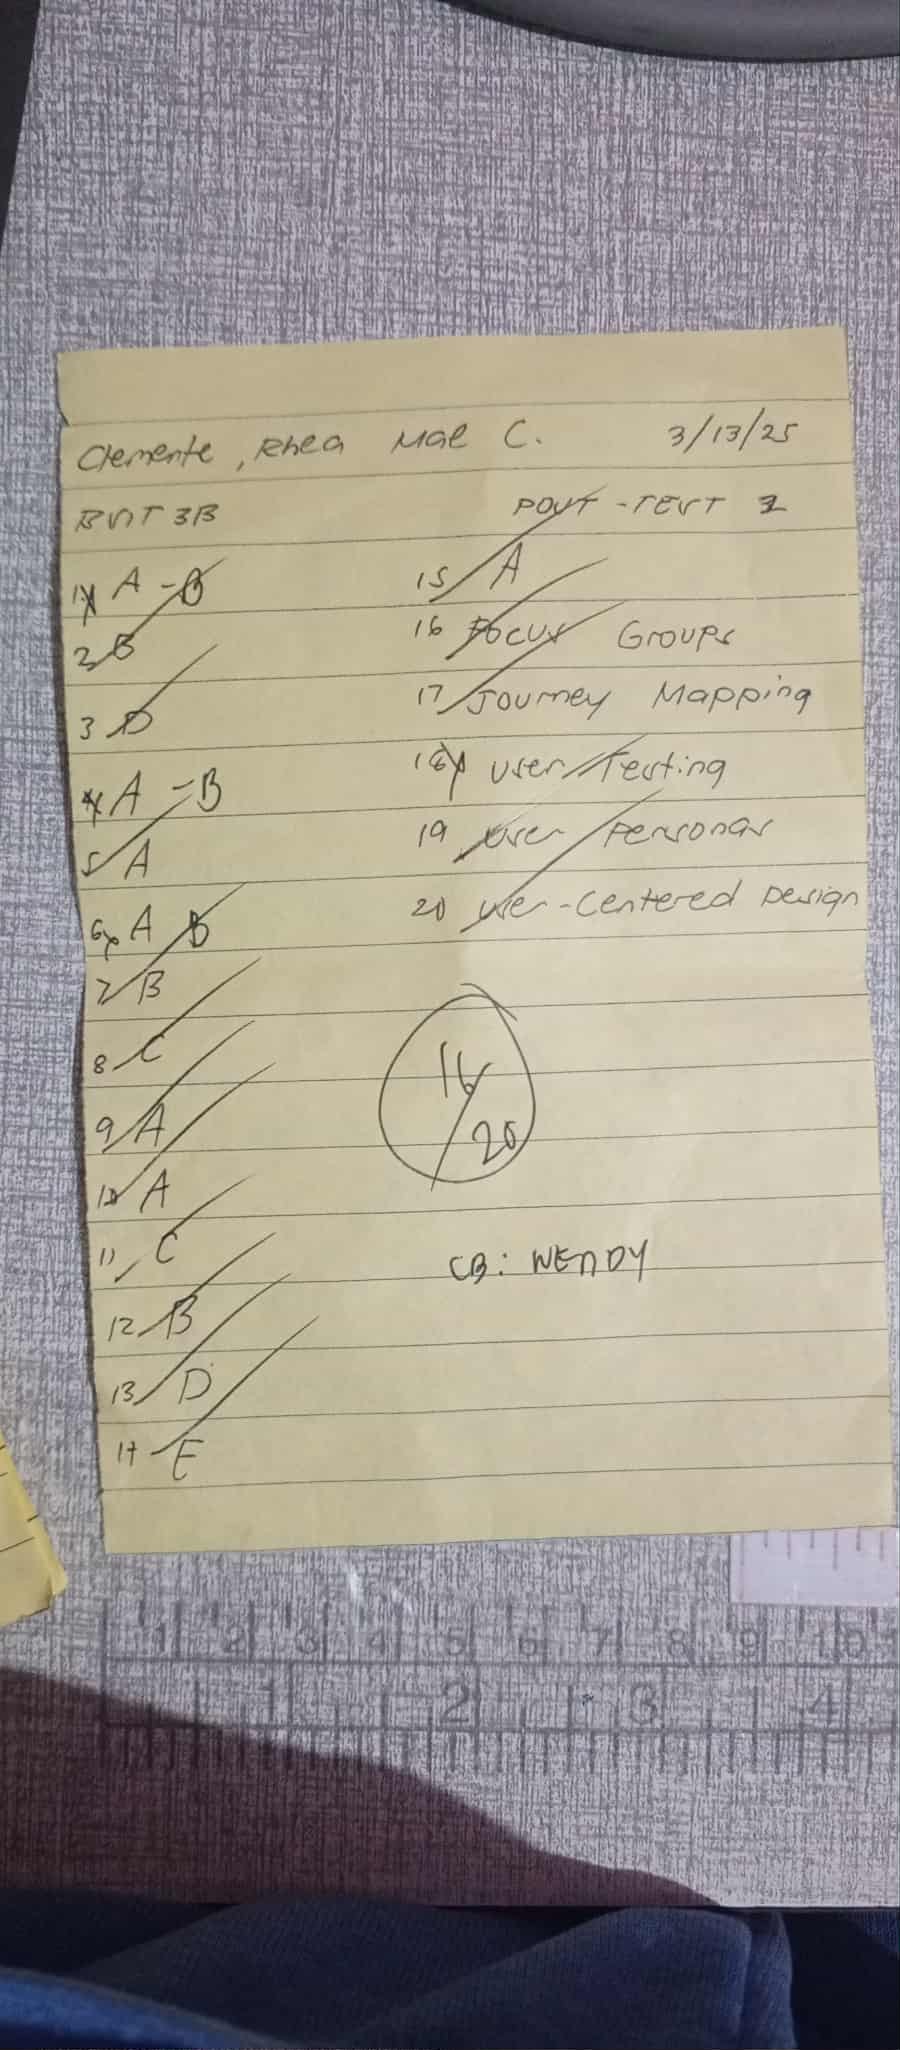 Clemente, Rhea Mae C. 3/13/25
POST-TEST 2
1 A - B
2 B
3 D
4 A - B
5 A
6 A B
7 B
8 C
9 A
10 A
11 C
12 B
13 D
14 E
15 A
16 Focus Groups
17 Journey Mapping
18 User Testing
19 User Personas
20 User-Centered Design
16/20
CB: WENDY
1 2 3 4 5 6 7 8 9 10
1 2 3 4